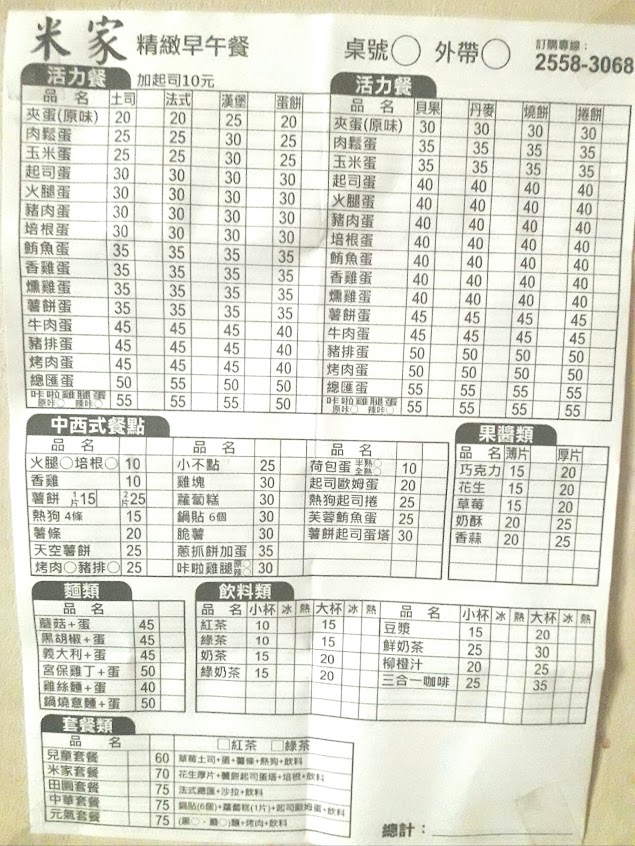 米家 精緻早午餐 桌號○ 外帶○ 訂購專線：2558-3068
活力餐 加起司10元
品名 土司 法式 漢堡 蛋餅
夾蛋(原味) 20 20 25 20
肉鬆蛋 25 25 30 25
玉米蛋 25 25 30 25
起司蛋 30 30 30 30
火腿蛋 30 30 30 30
豬肉蛋 30 30 30 30
培根蛋 30 30 30 30
鮪魚蛋 35 35 35 35
香雞蛋 35 35 35 35
燻雞蛋 35 35 35 35
薯餅蛋 35 35 35 35
牛肉蛋 45 45 45 40
豬排蛋 45 45 45 40
烤肉蛋 45 45 45 40
總匯蛋 50 50 55 50
咔啦雞腿蛋 原咔○ 辣咔○ 55 55 55 50
活力餐
品名 貝果 丹麥 燒餅 捲餅
夾蛋(原味) 30 30 30 30
肉鬆蛋 35 35 35 35
玉米蛋 35 35 35 35
起司蛋 40 40 40 40
火腿蛋 40 40 40 40
豬肉蛋 40 40 40 40
培根蛋 40 40 40 40
鮪魚蛋 40 40 40 40
香雞蛋 40 40 40 40
燻雞蛋 40 40 40 40
薯餅蛋 45 45 45 45
牛肉蛋 45 45 45 45
豬排蛋 50 50 50 50
烤肉蛋 50 50 50 50
總匯蛋 55 55 55 55
咔啦雞腿蛋 原咔○ 辣咔○ 55 55 55 55
中西式餐點
品名
火腿○培根○ 10
香雞 10
薯餅 1片15 2片25
熱狗 4條 15
薯條 20
天空薯餅 25
烤肉○豬排○ 25
品名
小不點 25
雞塊 30
蘿蔔糕 30
鍋貼 6個 30
脆薯 30
蔥抓餅加蛋 35
咔啦雞腿 原○ 辣○ 30
品名
荷包蛋 半熟○ 全熟○ 10
起司歐姆蛋 20
熱狗起司捲 25
芙蓉鮪魚蛋 25
薯餅起司蛋塔 30
果醬類
品名 薄片 厚片
巧克力 15 20
花生 15 20
草莓 15 20
奶酥 20 25
香蒜 20 25
麵類
品名
蘑菇+蛋 45
黑胡椒+蛋 45
義大利+蛋 45
宮保雞丁+蛋 50
雞絲麵+蛋 40
鍋燒意麵+蛋 50
飲料類
品名 小杯 冰 熱 大杯 冰 熱
紅茶 10 15
綠茶 10 15
奶茶 15 20
綠奶茶 15 20
品名 小杯 冰 熱 大杯 冰 熱
豆漿 15 20
鮮奶茶 25 30
柳橙汁 20 25
三合一咖啡 25 35
套餐類
品名 □紅茶 □綠茶
兒童套餐 60 草莓土司+蛋+薯條+熱狗+飲料
米家套餐 70 花生厚片+薯餅起司蛋塔+培根+飲料
田園套餐 75 法式總匯+沙拉+飲料
中華套餐 75 鍋貼(6個)+蘿蔔糕(1片)+起司歐姆蛋+飲料
元氣套餐 75 (黑○、蘑○)麵+烤肉+飲料
總計：